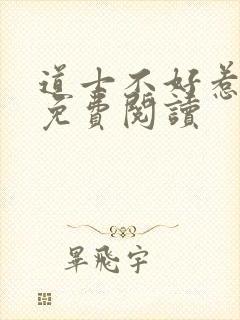 道士不好惹
免費閱讀
畢飛宇